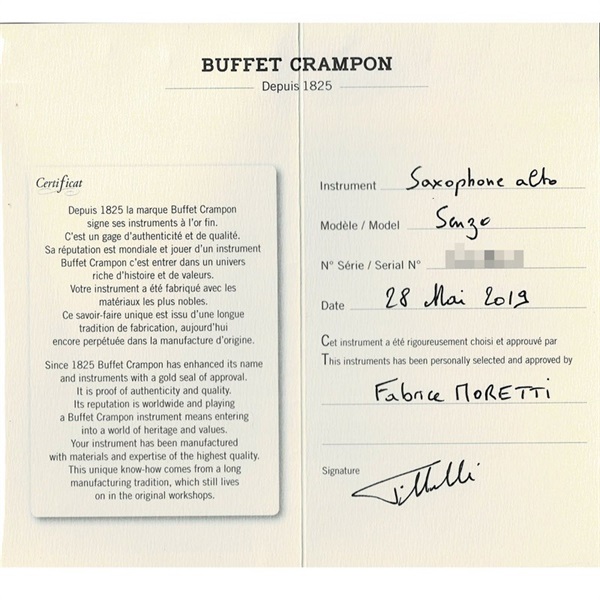 BUFFET CRAMPON
Depuis 1825
Certificat
Depuis 1825 la marque Buffet Crampon
signe ses instruments à l'or fin.
C'est un gage d'authenticité et de qualité.
Sa réputation est mondiale et jouer d'un instrument
Buffet Crampon c'est entrer dans un univers
riche d'histoire et de valeurs.
Votre instrument a été fabriqué avec les
matériaux les plus nobles.
Ce savoir-faire unique est issu d'une longue
tradition de fabrication, aujourd'hui
encore perpétuée dans la manufacture d'origine.
Since 1825 Buffet Crampon has enhanced its name
and instruments with a gold seal of approval.
It is proof of authenticity and quality.
Its reputation is worldwide and playing
a Buffet Crampon instrument means entering
into a world of heritage and values.
Your instrument has been manufactured
with materials and expertise of the highest quality.
This unique know-how comes from a long
manufacturing tradition, which still lives
on in the original workshops.
Instrument Saxophone alto
Modèle / Model Senzo
N° Série / Serial N°
Date 28 Mai 2019
Cet instrument a été rigoureusement choisi et approuvé par
This instruments has been personally selected and approved by
Fabrice MORETTI
Signature